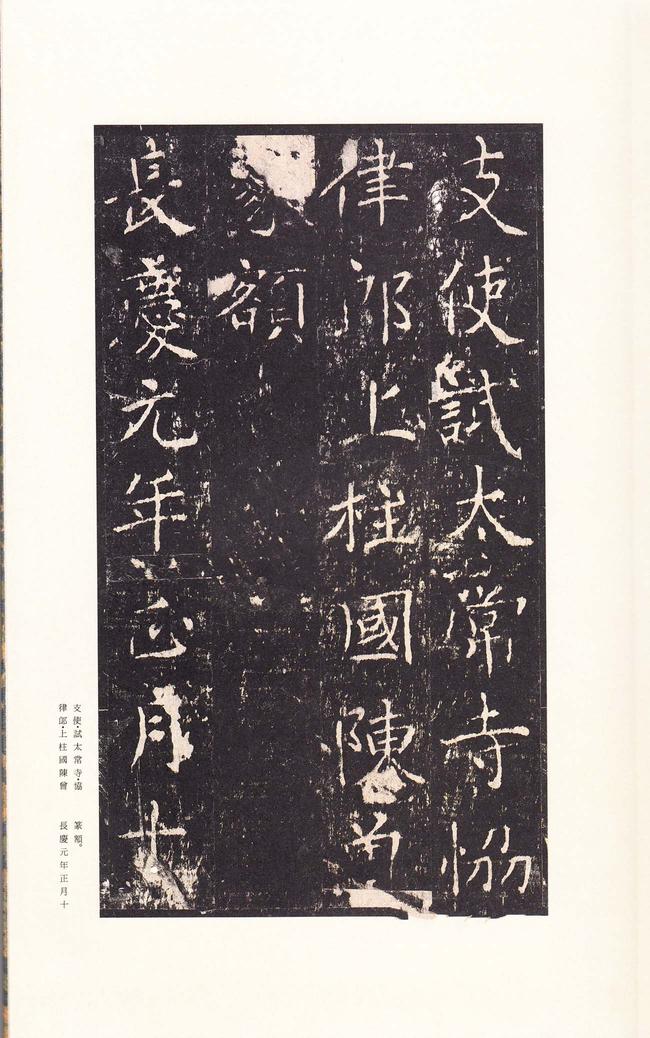 支使試太常寺恊
律郎上柱國陳曾
篆額
長慶元年正月十
支使·試太常寺·協　篆額。
律郎·上柱國陳曾　長慶元年正月十